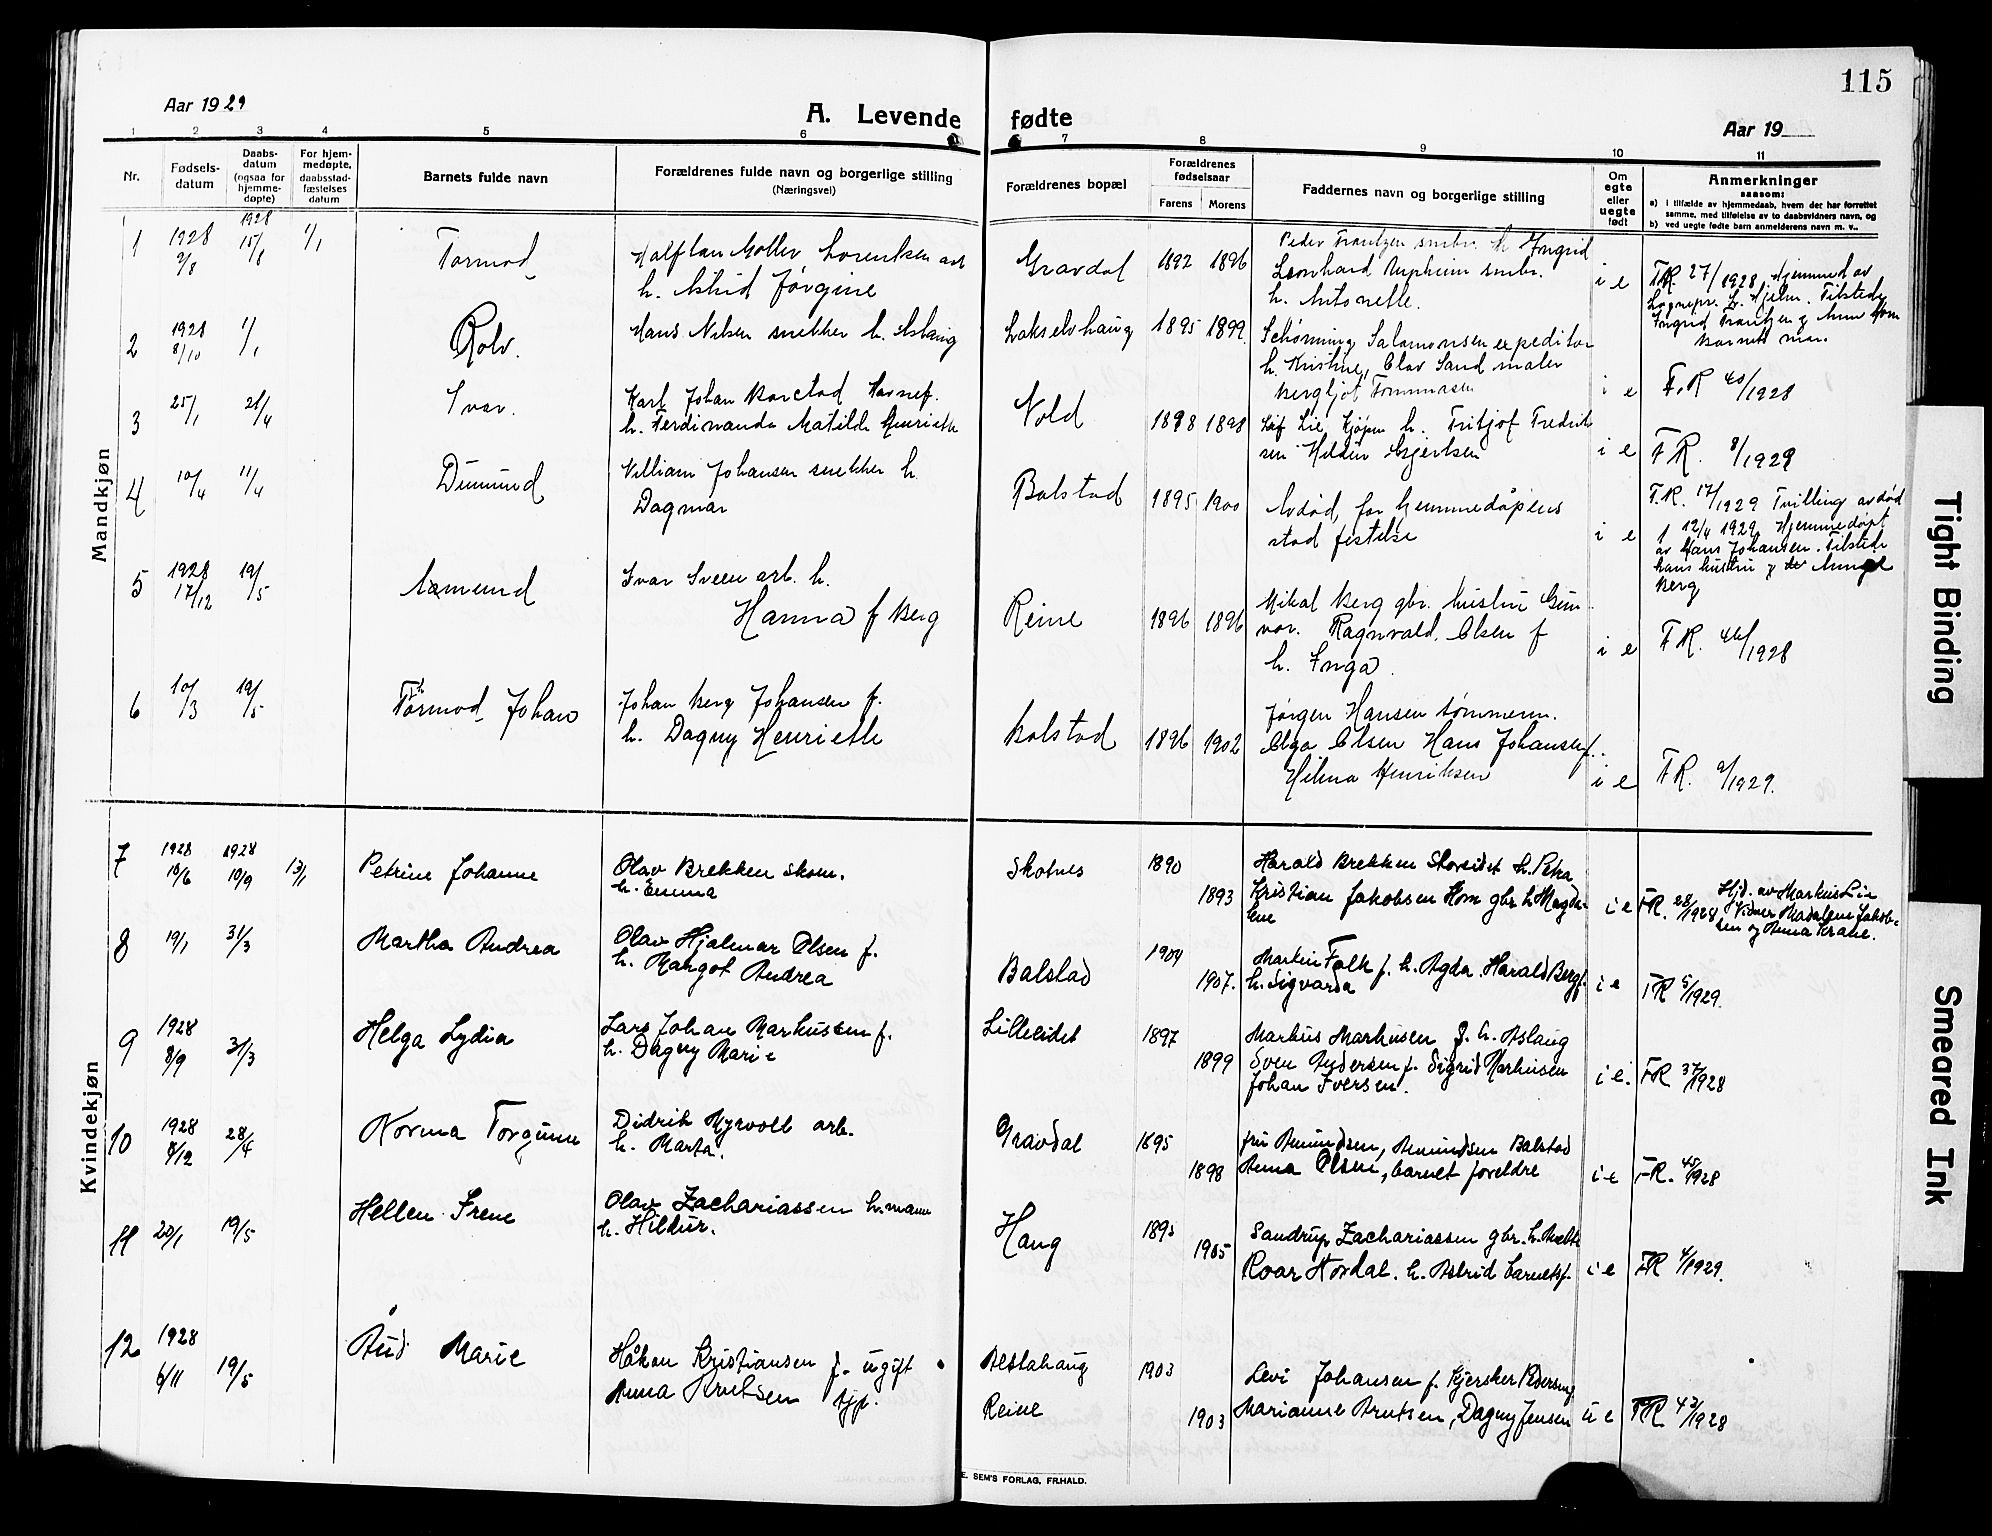 115
Aar 1929
A. Levende fødte
Aar 19
1 2 3 4 5 6 7 8 9 10 11
Nr.
Fødsels-
datum
Daabs-
datum
(ogsaa for
hjemme-
døpte)
For hjem-
medøpte,
daabsstad-
fæstelses
datum
Barnets fulde navn
Forældrenes fulde navn og borgerlige stilling
(Næringsvei)
Forældrenes bopæl
Forældrenes
fødselsaar
Farens Morens
Faddernes navn og borgerlige stilling
Om
egte
eller
uegte
født
Anmerkninger
saasom:
a) i tilfælde av hjemmedaab, hvem der har forrettet
samme, med tilføielse av to daabsvidners navn, og
b) ved uegte fødte barn anmelderens navn m. v..
Mandkjøn
1 1928 9/8 1928 15/8 1/1 Tormod
Halfdan Møller Lorentsen arb
h. Astrid Jørgine
Gravdal 1892 1896
Peder Frantzen smbr. h Ingrid
Leonhard smbr.
h. Antonette.
i e
F.R. 27/1928. Hjemmed av
Sognepr. Hjelm. Tilstede
Ingrid Frantzen og
barnets mor.
2 1928 8/10 1/1 Rolv.
Hans Nilsen snekker h. Aslaug
Lakselvhaug 1895 1899.
Schønning Salamonsen expeditør
h. Kristine, Olav Sand maler
Bergljot Tommasen
i e
F.R 40/1928
3 25/1 21/4 Ivar.
Karl Johan Borstad Havnef.
h. Ferdinanda Matilde Henriette
Vold 1898 1898
Leif Lie, Kjøpm h. Fritjof Fredrik
sen Hildur Gjertsen
i e
F R. 8/1929
4 10/4 11/4
William Johansen snekker h.
Dagmar
Balstad 1895 1900
Avdød, før hjemmedåpens
stad festelse
i e
F.R. 17/1929 Tvilling avdød
12/4 1929. Hjemmedøpt
av Hans Johansen. Tilstede
hans hustru og
Berg
5 1928 17/12 19/5 Aamund
Ivar Sveen arb. h.
Hanna f Berg
Reine 1896 1896
Mikal Berg gbr. hustru Gun
vor. Ragnvald. Olsen f
h. Inga.
i e
F R. 46/1928
6 10/3 19/5 Tormod Johan
Johan Berg Johansen f.
h. Dagny Henriette
Balstad 1896 1902
Jørgen Hansen tømmerm.
Olga Olsen Hans Johansen f.
Hilma Henriksen
i e
F R. 9/1929.
Kvindekjøn
7 1928 10/6 1928 10/9 13/1 Petrine Johanne
Olav Brekken skom.
h. Emma
Skotnes 1890 1893
Harald Brekken Storeidet h. Petra
Kristian Jakobsen Hom gbr h Magda
lene
i e
F.R. 28/1928
Hjd. av Markus Lie
Vidner Madalene Jakob-
sen og Anna Krane.
8 19/1 31/3 Martha Andrea
Olav Hjalmar Olsen f.
h. Margot Andrea
Balstad 1904 1907.
Martin Falk f. h. Agda. Harald Berg f.
h. Sigvarda
i e
F R 5/1929.
9 1928 8/9 31/3 Helga Lydia
Lars Johan Markussen f.
h. Dagny Marie
Lilleeidet 1897 1899
Markus Markusen f. h. Aslaug
Sven Andersen f. Sigrid Markusen
Johan Iversen.
i e.
F R 37/1928
10 1928 8/12 28/4 Norma Torgunn
Didrik Myrvoll arb.
h. Marta.
Gravdal 1895 1898
fru Amundsen, Amundsen Balstad
Anna Olsen, barnet foreldre
i e
F R. 45/1928
11 20/1 19/5 Hellen Irene
Olav Zachariassen h.mann
h. Hildur.
Haug 1895 1905
Sandrup Zachariassen gbr. h.
Roar Nordal. h. Astrid barnetsf.
i e
F R 4/1929.
12 1928 6/11 19/5 Aud Marie
Håkon Kristiansen f. ugift
Anna Knutsen tjp.
Alstahaug
Reine
1903 1903
Levi Johansen f. Pedersen
Marianne Knutsen, Dagny Jensen
u e
F R 43/1928
E. SEM'S FORLAG, FR.HALD.
Tight Binding
Smeared Ink